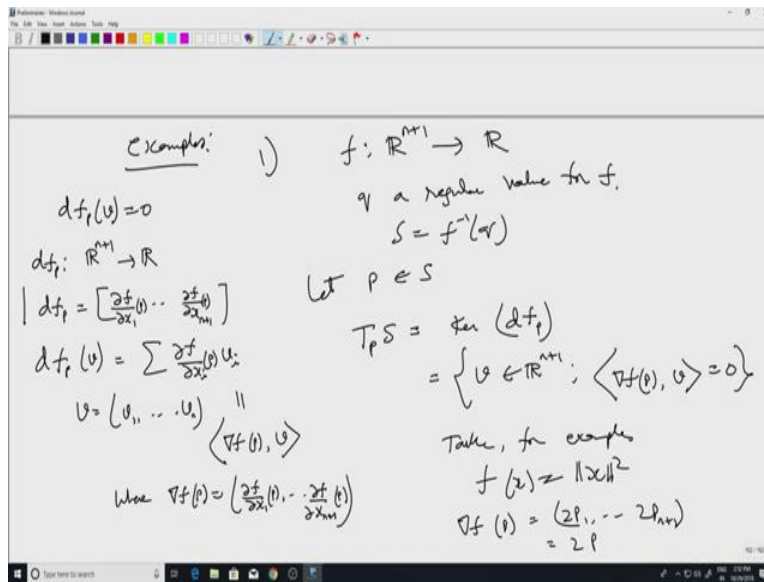 Preliminaries - Windows Journal
File Edit View Insert Actions Tools Help
Examples:
1) f: ℝ^{n+1} → ℝ
q a regular value for f.
S = f^{-1}(q)
Let p ∈ S
T_p S = ker (df_p)
= { v ∈ ℝ^{n+1} : ⟨∇f(p), v⟩ = 0 }
Take, for example
f(x) = ||x||^2
∇f(p) = (2p_1, ... 2p_{n+1})
= 2p
df_p(v) = 0
df_p: ℝ^{n+1} → ℝ
df_p = [∂f/∂x_1(p) ... ∂f/∂x_{n+1}(p)]
df_p(v) = Σ ∂f/∂x_i(p) v_i
v = (v_1, ... v_n) ||
⟨∇f(p), v⟩
where ∇f(p) = (∂f/∂x_1(p), ... ∂f/∂x_{n+1}(p))
Type here to search